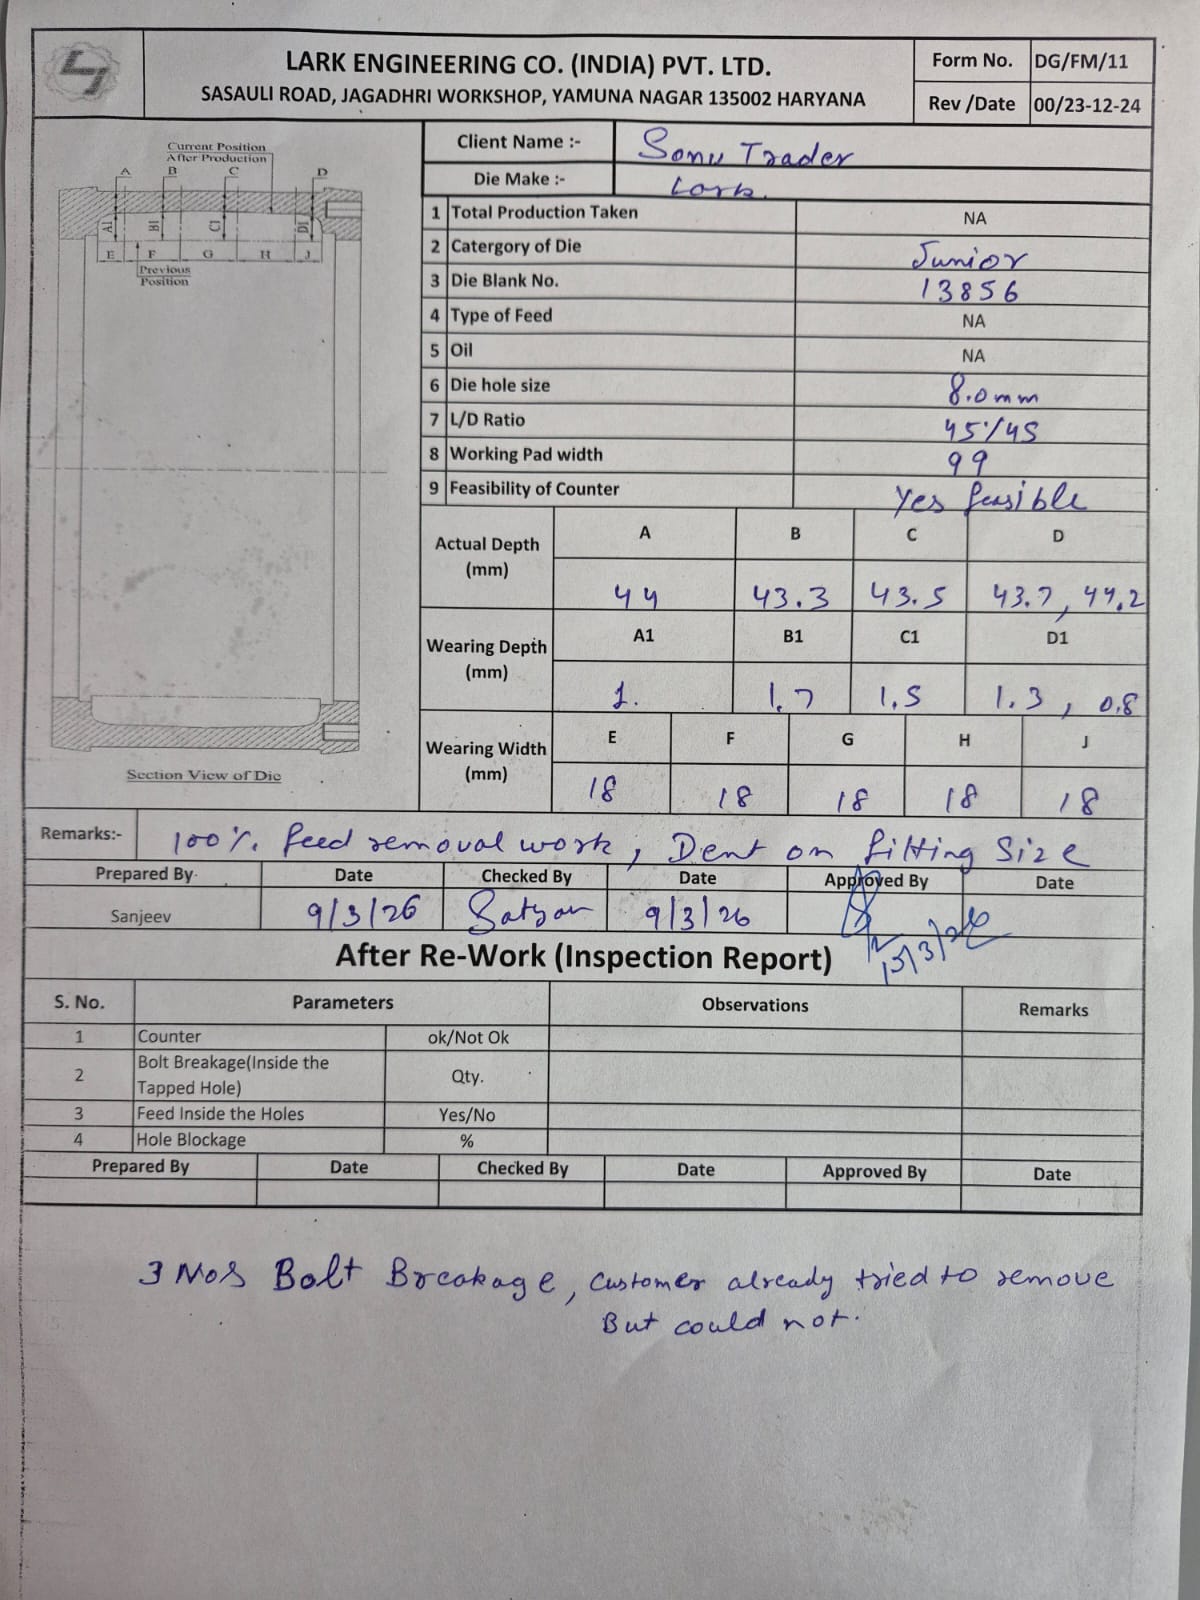 LARK ENGINEERING CO. (INDIA) PVT. LTD.
SASAULI ROAD, JAGADHRI WORKSHOP, YAMUNA NAGAR 135002 HARYANA
Form No. DG/FM/11
Rev /Date 00/23-12-24
Current Position
After Production
A B C D
A1 B1 C1 D1
E F G H J
Previous
Position
Section View of Die
Client Name :- Sonu Trader
Die Make :- Lark.
1 Total Production Taken NA
2 Catergory of Die Junior
3 Die Blank No. 13856
4 Type of Feed NA
5 Oil NA
6 Die hole size 8.0mm
7 L/D Ratio 45/45
8 Working Pad width 99
9 Feasibility of Counter Yes feasible
Actual Depth (mm) A B C D
44 43.3 43.5 43.7, 44.2
Wearing Depth (mm) A1 B1 C1 D1
1. 1.7 1.5 1.3, 0.8
Wearing Width (mm) E F G H J
18 18 18 18 18
Remarks:- 100% feed removal work, Dent on fitting Size
Prepared By Date Checked By Date Approved By Date
Sanjeev 9/3/26 Satyan 9/3/26
After Re-Work (Inspection Report)
S. No. Parameters Observations Remarks
1 Counter ok/Not Ok
2 Bolt Breakage(Inside the Tapped Hole) Qty.
3 Feed Inside the Holes Yes/No
4 Hole Blockage %
Prepared By Date Checked By Date Approved By Date
3 Nos Bolt Breakage, Customer already tried to remove
But could not.